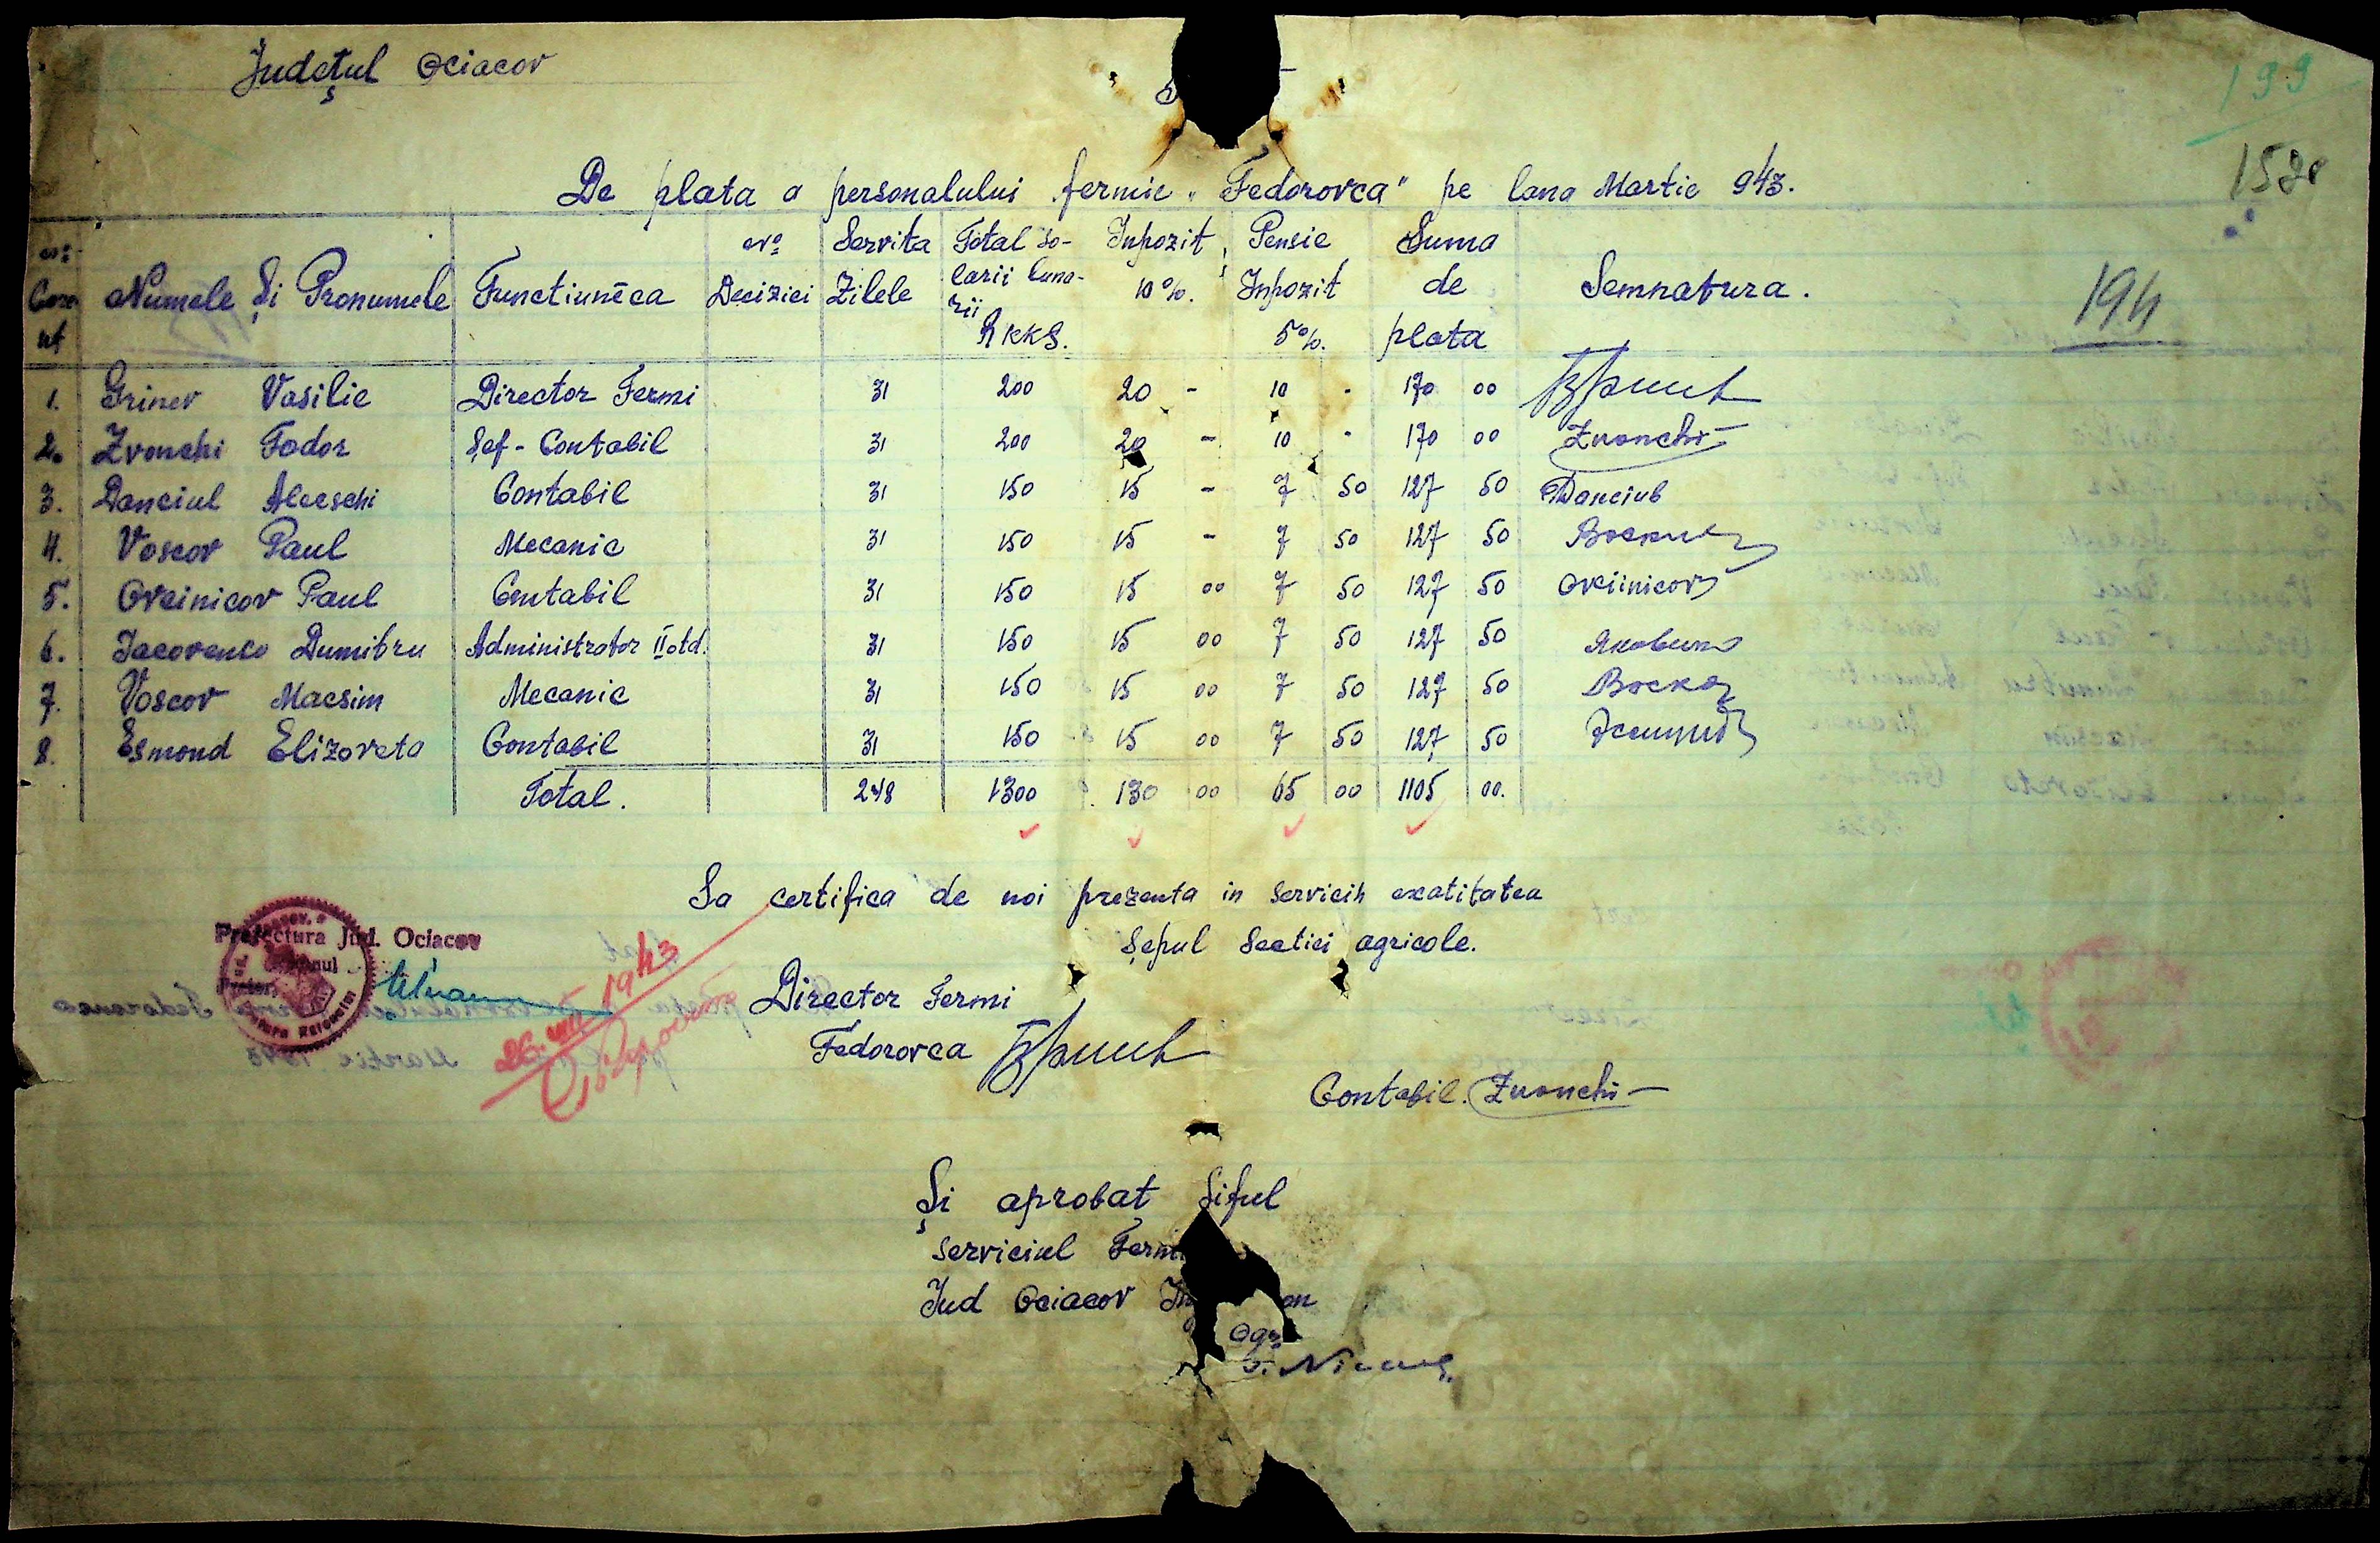 Județul Ociacov
199
1580
194
De plata a personalului fermie "Fedorovca" pe lana Martie 943.
Numele și Pronumele Functiuneea No Deciziei Servita Zilele Total So-larii luna-rii RKKS. Inpozit 10%. Pensie Inpozit 5%. Suma de plata Semnatura.
1. Grinev Vasilie Director Fermi 31 200 20 - 10 - 170 00
2. Zvonchi Fodor Șef-Contabil 31 200 20 - 10 - 170 00 Zvonchi
3. Danciul Alecschi Contabil 31 150 15 - 7 50 127 50 Danciul
4. Voscov Paul Mecanic 31 150 15 - 7 50 127 50
5. Ovcinicov Paul Contabil 31 150 15 00 7 50 127 50 Ovcinicov
6. Iacovenco Dumitru Administrator II otd. 31 150 15 00 7 50 127 50
7. Voscov Macsim Mecanic 31 150 15 00 7 50 127 50
8. Esmond Elizoveta Contabil 31 150 15 00 7 50 127 50
Total. 248 1300 130 00 65 00 1105 00.
Sa certifica de noi prezenta in servicih exatitatea
șepul Sectiei agricole.
Prefectura Jud. Ociacov
26.VIII 1943
Director Fermi
Fedorovca
Contabil. Zvonchi
Și aprobat Șiful
serviciul Ferm
Jud Ociacov